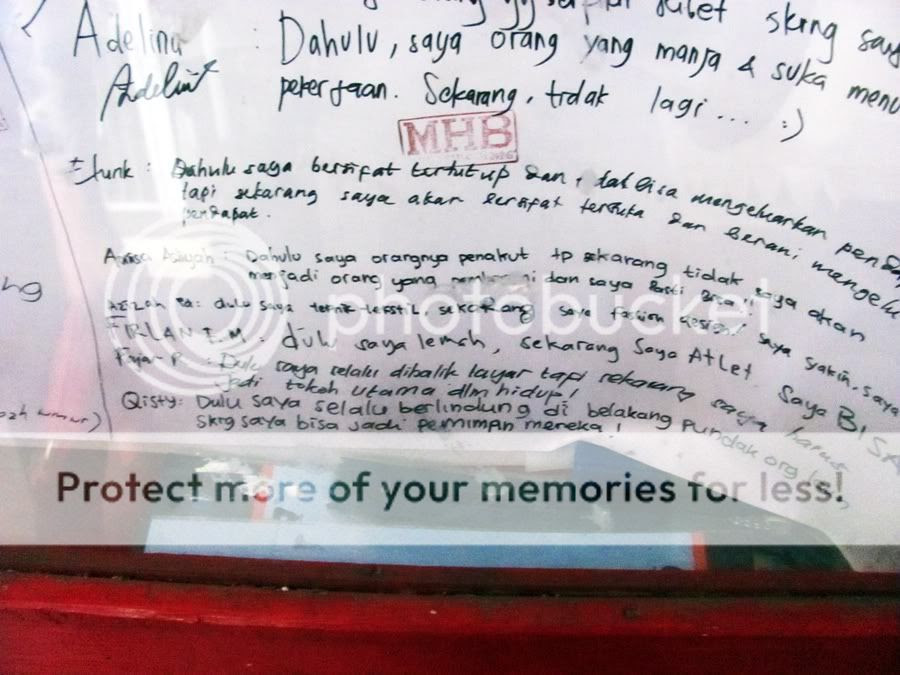 jubet skrng say
Adelina : Dahulu, saya orang yang manja & suka menu
Adelina pekerjaan. Sekarang, tidak lagi... :)
MHB
: Dahulu saya bersifat tertutup dan tdak bisa mengeluarkan pend
tapi sekarang saya akan bersifat terbuka dan berani mengelu
pendapat.
Asiyah : Dahulu saya orangnya penakut tp sekarang tidak saya akan
menjadi orang yang pemberani dan saya Pasti Bisa!
ng
dulu saya teknik tekstil, sekarang saya fashion design! saya yakin saya
M : dulu saya lemah, sekarang Saya Atlet. Saya BISA
Fajar R : Dulu saya selalu dibalik layar tapi sekarang saya harus
Jadi tokoh utama dlm hidup!
Qisty: Dulu saya selalu berlindung di belakang pundak org
skrg saya bisa jadi pemimpin mereka!
photobucket
Protect more of your memories for less!